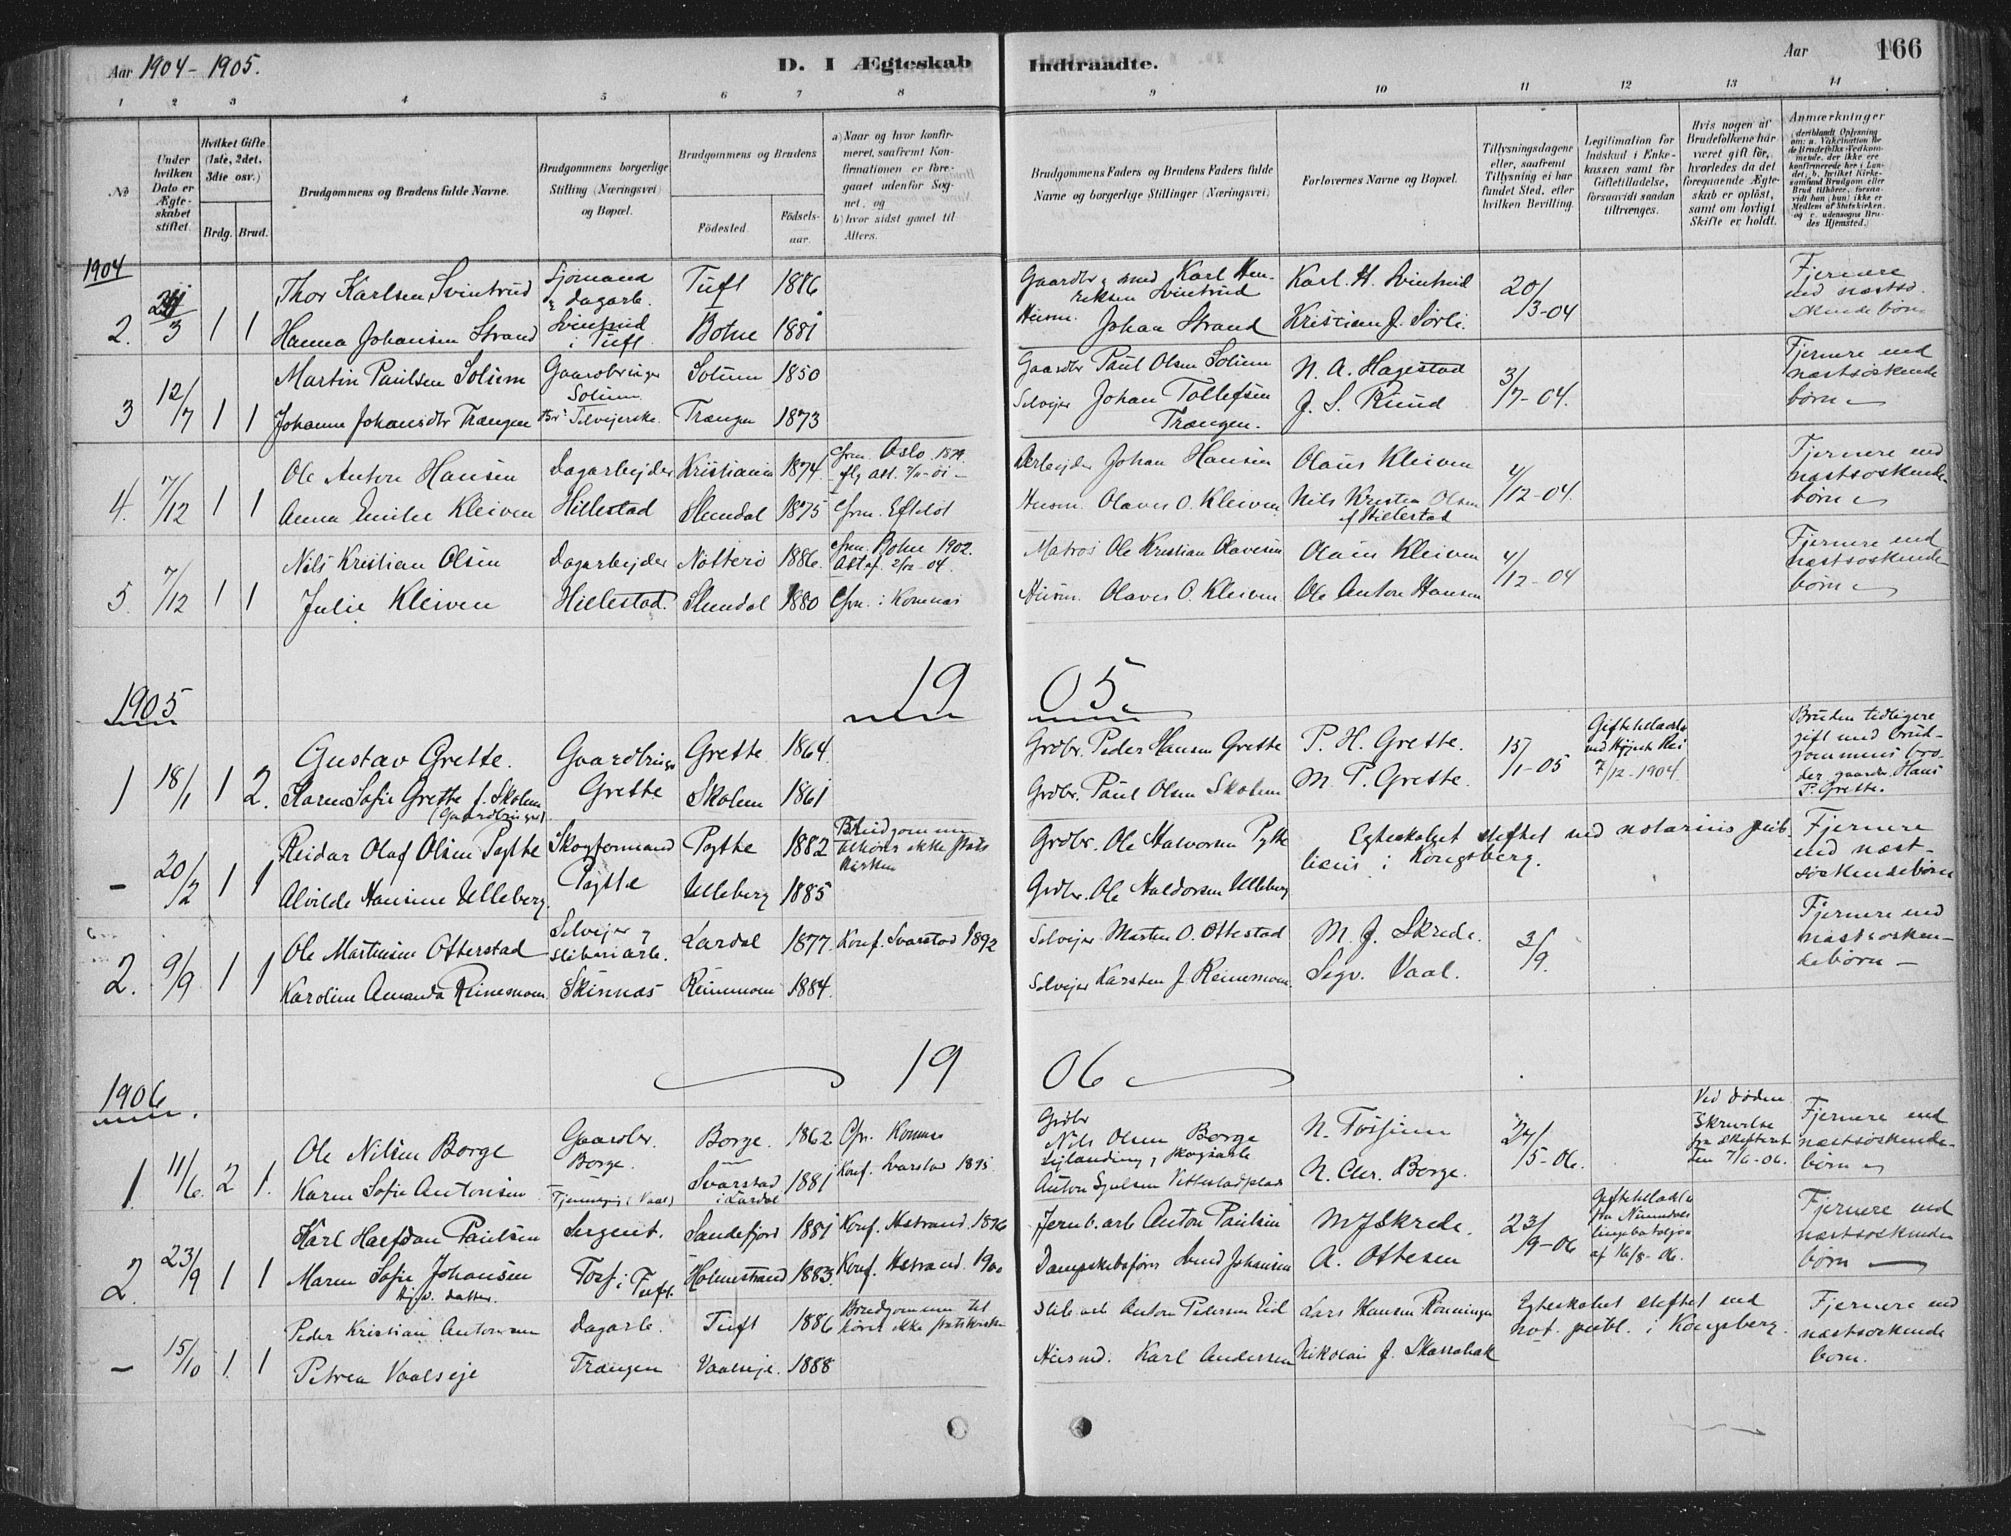 Aar 1904-1905.
D. I Ægteskab
Indtraadte.
Aar
166
1 2 3 4 5 6 7 8 9 10 11 12 13 14
No
Under hvilken Dato er Ægteskabet stiftet.
Hvilket Gifte (1ste, 2det, 3dte osv.)
Brdg. Brud.
Brudgommens og Brudens fulde Navne.
Brudgommens borgerlige Stilling (Næringsvei) og Bopæl.
Brudgommens og Brudens
Födested.
Födsels-aar.
a) Naar og hvor konfirmeret, saafremt Konfirmationen er foregaaet udenfor Sognet, og
b) hvor sidst gaaet til Alters.
Brudgommens Faders og Brudens Faders fulde Navne og borgerlige Stillinger (Næringsvei)
Forlovernes Navne og Bopæl.
Tillysningsdagene eller, saafremt Tillysning ei har fundet Sted, efter hvilken Bevilling.
Legitimation for Indskud i Enkekassen samt for Giftetilladelse, forsaavidt saadan tiltrænges.
Hvis nogen af Brudefolkene har været gift för, hvorledes da det foregaaende Ægteskab er oplöst, samt om lovligt Skifte er holdt.
Anmærkninger
1904
2. 1 1 Thor Karlsen Svintrud Sjömand & dagarb. Tuft 1876 Gaardbr & smed Karl Henriksen Svintrud Karl. H. Svintrud 20/3-04 Fjernere end næstsöskendebörn
Hanna Johansen Strand Svintrud i Tuft. Botne 1881 Husm. Johan Strand Kristian J. Sörli.
3 12/7 1 1 Martin Paulsen Solum Gaardbruger Solum Solum 1850 Gaardbr Paul Olsen Solum N. A. Hagestad 3/7-04. Fjernere end næstsöskende börn
Johanne Johansdtr Trængen Br. Selvejerske. Trængen 1873 Selvejer Johan Tollefsen Trængen. J. S. Ruud
4. 7/12 1 1 Ole Anton Hansen Dagarbejder Kristiania 1874 Arbejder Johan Hansen Olaus Kleiven 4/12-04. Fjernere end næstsöskende börn
Anna Emilie Kleiven Hillestad 1875 Cfrm. Efteløt Husm. Olaves O. Kleiven Nils Kristian Olsen af Hillestad
5. 7/12 1 1 Nils Kristian Olsen Dagarbejder Nötterö 1886. Cfrm. Botne 1902. Matros Ole Kristian Olavesen Olaus Kleiven 4/12-04 Fjernere end næstsöskende börn
Julie Kleiven Hillestad. 1880 Cfrm. i Komnæs Husm. Olaves O. Kleiven Ole Anton Hansen
1905
19 05.
1 18/1 1 2. Gustav Grette. Gaardbruger Grette Grette 1864 Grdbr. Peder Hansen Grette P. H. Grette. 15/1-05 7/12-1904. Bruden tidligere gift med brudgommens broder gaardbr. Hans P. Grette.
Karen Sofie Grette f. Skolem (Gaardbruger) Skolem 1861 Grdbr. Paul Olsen Skolem M. P. Grette.
- 20/2 1 1 Reidar Olaf Olsen Pytte Skogformand Pytte Pytte 1882 Brudgommen tilhörer ikke statskirken Grdbr. Ole Halvorsen Pytte Egteskabet stiftet ved notarius publicus i Kongsberg. Fjernere end næstsöskendebörn
Alvilde Hansine Ulleberg. Ulleberg 1885 Grdbr. Ole Haldorsen Ulleberg
2. 9/9 1 1 Ole Martinsen Otterstad Selvejer & sliberiarb. Lardal 1877. Konf. Svarstad 1892 Selvejer Martin O. Ottestad M. J. Skrede. 3/9. Fjernere end næstsöskendebörn
Karoline Amanda Reinemoen. Skinnæs Reinemoen 1884. Selvejer Karsten J. Reinemoen. Segv. Vaal.
19 06
1906
1. 11/6. 2 1. Ole Nilsen Borge Gaardbr. Borge. Borge. 1862 Grdbr Nils Olsen Borge N. Fosjinn 27/5-06. Ved döden Skrivelse fra skifteret Fjernere end næstsöskende börn
Karen Sofie Antonsen Svarstad i Lardal 1881 Konf. Svarstad 1895 N. Chr. Borge.
2. 23/9 1 1 Karl Halfdan Paulsen Sergent. Sandefjord 1881 Jernb. arb Anton Paulsen M J Skrede. 23/9-06 af 16/8-06. Fjernere end næstsöskende börn
Maren Sofie Johansen i Tuft. Holmestrand 1883. Konf. Hstrand. 1900 Dampskibsförer Johansen A. Ottesen
- 15/10 1. 1 Peder Kristian Antonsen dagarb. Tuft 1886 Brudgommen tilhörer ikke statskirken Slib. arb Anton Pedersen Eid Lars Hansen Rönningen Egteskabet stiftet ved not. publ. i Kongsberg. Fjernere end næstsöskende börn.
Petrea Vaalseje Trængen Vaalseje. 1888 Husmd. Karl Andersen Nikolai J.